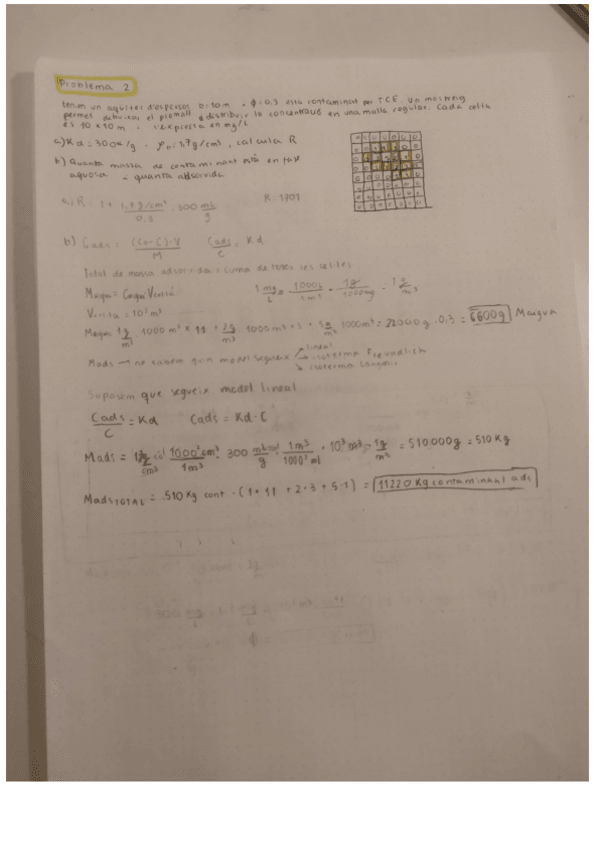 Problema 2
tenim un aqüífer d'espessor b=10m i ϕ=0.3 està contaminat per TCE. Un mostreig
permet dibuixar el plomall i distribuir la concentració en una malla regular. Cada cel·la
és 10 x 10 m i expressa en mg/L
a) Kd = 300 /g i ρ = 1,7 g/cm³, calcula R
b) Quanta massa de contaminant està en fase
aquosa i quanta absorvida
a) R = 1 + 1,7 g/cm³ / 0.3 · 300 mL/g R = 1701
b) Cads = (C0-C)·V / M Cads / C = Kd
Total de massa adsorvida = suma de totes les cel·les
Maigua = Caigua · V
1 mg/L = 1000L / 1m³ · 1g / 1000mg = 1 g/m³
V = 10³ m³
Maigua 1g/m³ · 1000m³ x 11 + 2g/m³ · 1000m³ · 3 + 5g/m³ 1000m³ = 22000g · 0.3 = 6600g Maigua
Mads → no sabem quin model segueix lineal
isoterma Freundlich
isoterma
Suposem que segueix model lineal
Cads / C = Kd Cads = Kd · C
Mads = 1000³cm³ / 1m³ · 300 / g · 1m³ / 1000² ml · 10³ m³ · 1g / m³ = 510.000g = 510 Kg
Mads TOTAL = 510 Kg cont · (1·11 + 2·3 + 5·1) = 11220 Kg contaminant ads